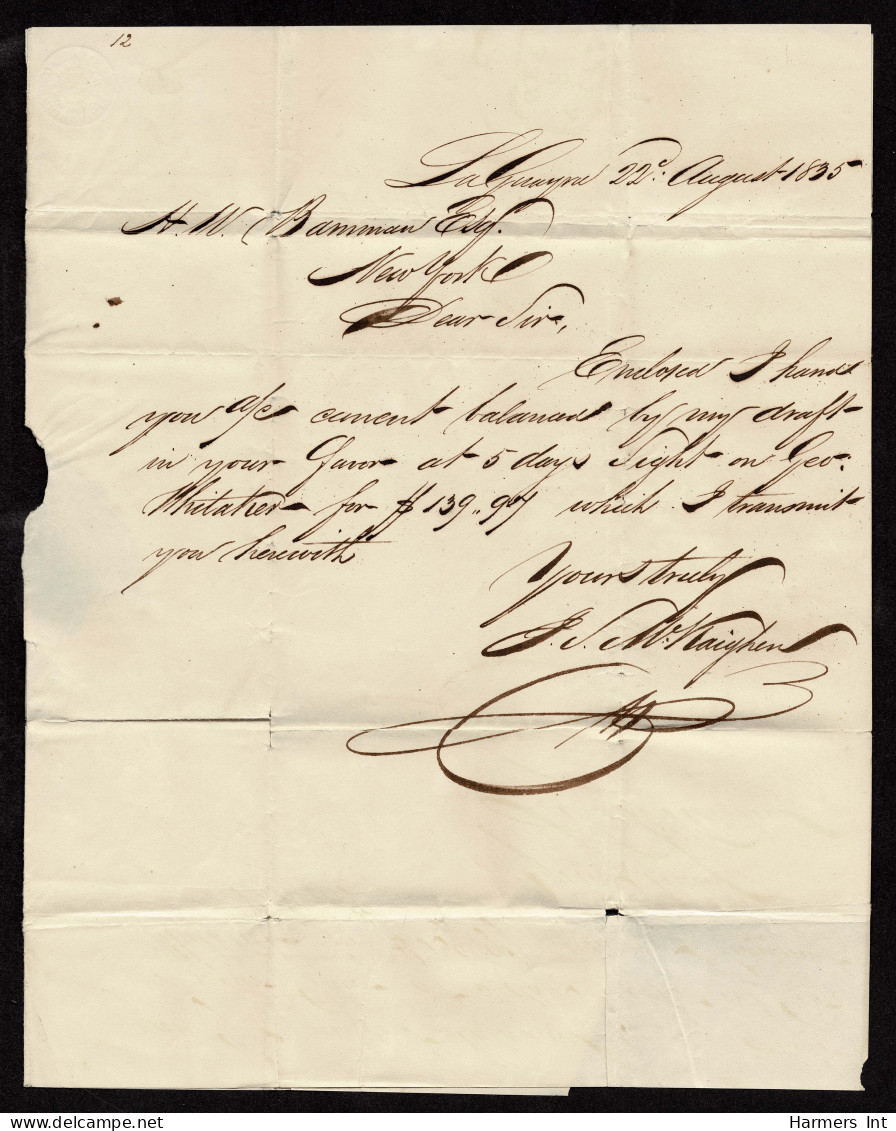 12
La Guayra 22d. August 1835
H. W. Bamman Esqr.
New York
Dear Sir,
Enclosed I hand
you a/c current balanced by my draft
in your favor at 5 days sight on Geo.
Whitaker for $139.,97 which I transmit
you herewith
Yours truly
J. S. McKaighen
Harmers Int